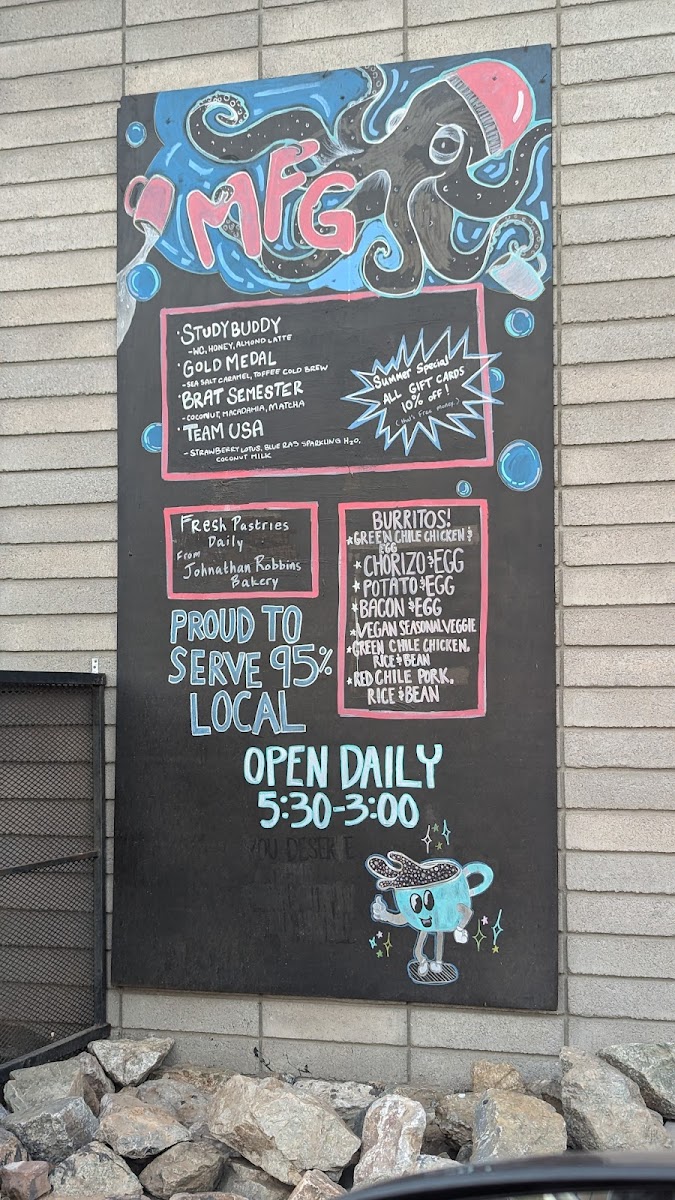 MFG
·STUDY BUDDY
-WC, HONEY, ALMOND LATTE
·GOLD MEDAL
-SEA SALT CARAMEL, TOFFEE COLD BREW
·BRAT SEMESTER
-COCONUT, MACADAMIA, MATCHA
·TEAM USA
-STRAWBERRY LOTUS, BLUE RAS SPARKLING H₂O,
COCONUT MILK
Summer Special
ALL GIFT CARDS
10% off!
(that's Free Money.)
FResh Pastries
Daily
From
Johnathan Robbins
Bakery
BURRITOS!
★GREEN CHILE CHICKEN &
EGG
★CHORIZO & EGG
★POTATO & EGG
★BACON & EGG
★VEGAN SEASONAL VEGGIE
★GREEN CHILE CHICKEN,
RICE & BEAN
★RED CHILE PORK,
RICE & BEAN
PROUD TO
SERVE 95%
LOCAL
OPEN DAILY
5:30-3:00
YOU DESERVE